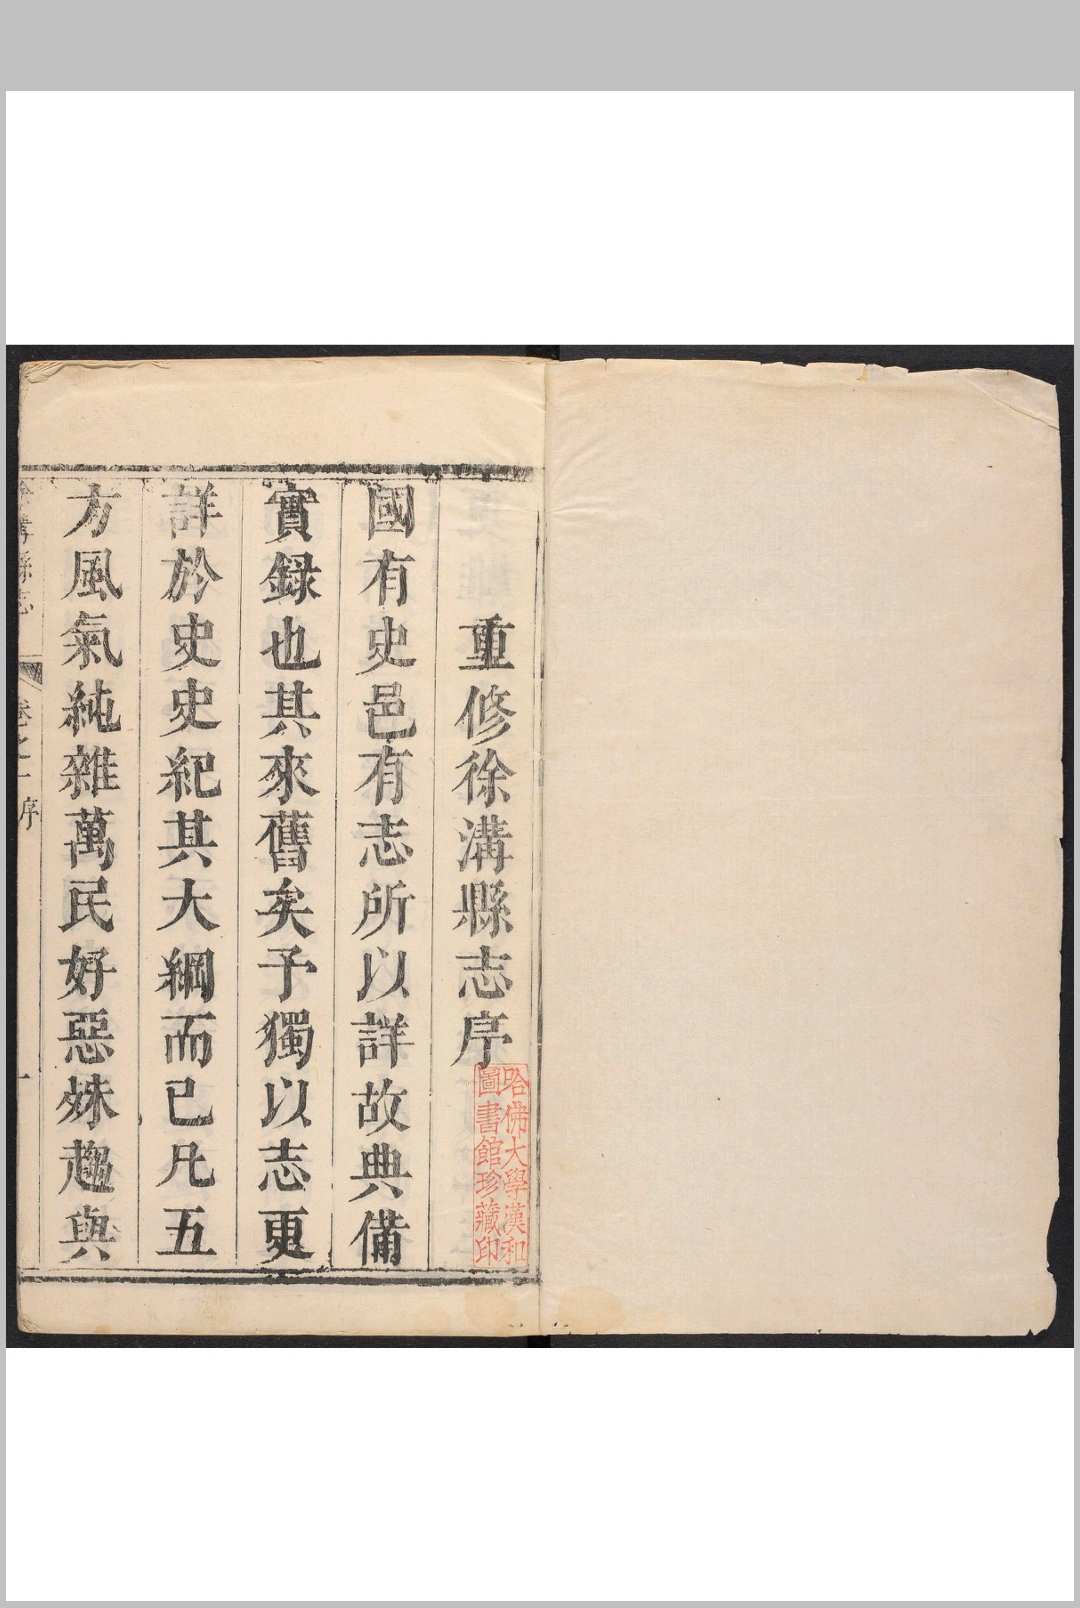 重修徐溝縣志序
國有史邑有志所以詳故典備
實録也其來舊矣予獨以志更
詳於史史紀其大綱而已凡五
方風氣純雜萬民好惡姝趨與
哈佛大學漢和
圖書館珍藏印
徐溝縣志
卷之一
序
一